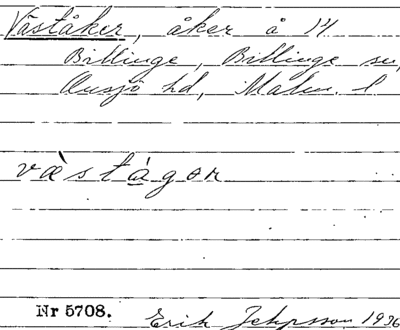 Väståker, åker å 14
Billinge, Billinge sn,
Onsjö hd, Malm. l
vàstågɷr
Nr 5708. Erik Jeppsson 1930